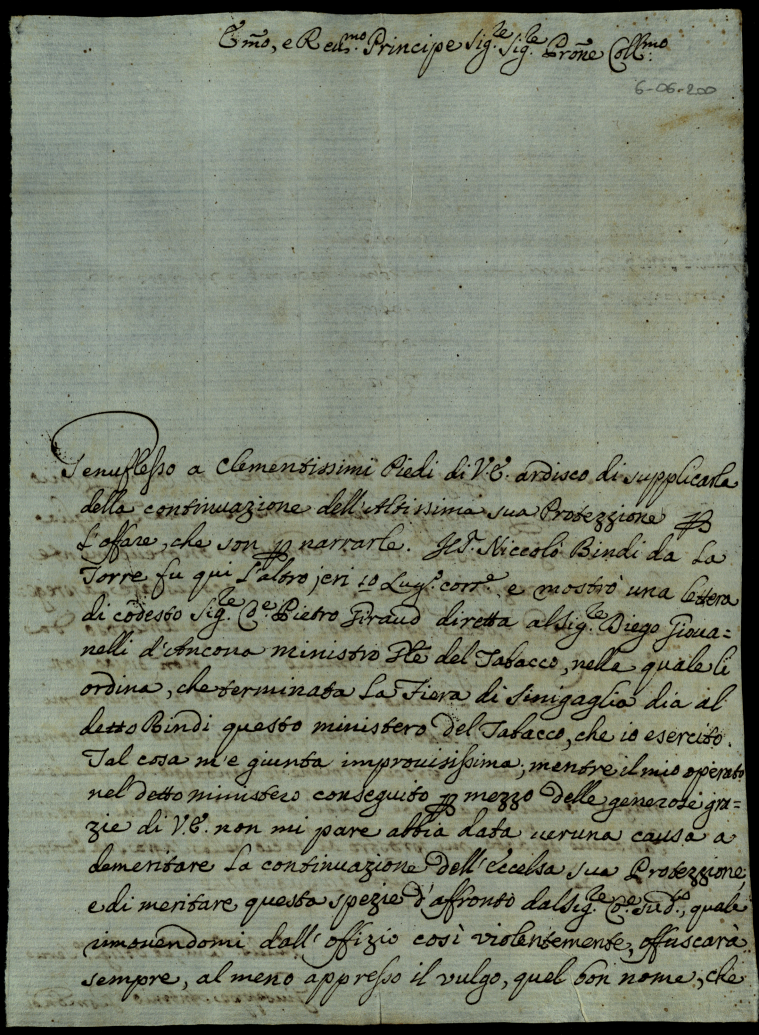 Em̃o, e Reu.mo Principe Sig.re Sig.re Prōne Coll.mo
6-06-200
Genuflesso a Clementissimi Piedi di V.E. ardisco di supplicarla
della continuazione dell'Altissima sua Protezzione ꝑ
l'affare, che son ꝑ narrarle. Il S.r Niccolò Bindi da La
Torre fu qui l'altro jeri 10 Lug.o corr.e e mostrò una lettera
di codesto Sig.re C.e Pietro Giraud diretta al Sig.re Diego Gioua=
nelli d'Ancona ministro Gñle del Tabacco, nella quale li
ordina, che terminata La Fiera di Sinigaglia dia al
detto Bindi questo ministero del Tabacco, che io esercito.
Tal cosa m'e giunta improuisissima, mentre il mio operato
nel detto ministero conseguito ꝑ mezzo delle generose gra=
zie di V.E. non mi pare abbia data ueruna causa a
demeritare La continuazione dell'eccelsa sua Protezzione,
e di meritare questa spezie d'affronto dal Sig.re C.e sud.o, quale
rimouendomi dall'offizio così violentemente, offuscarà
sempre, al meno appresso il vulgo, quel bon nome, che